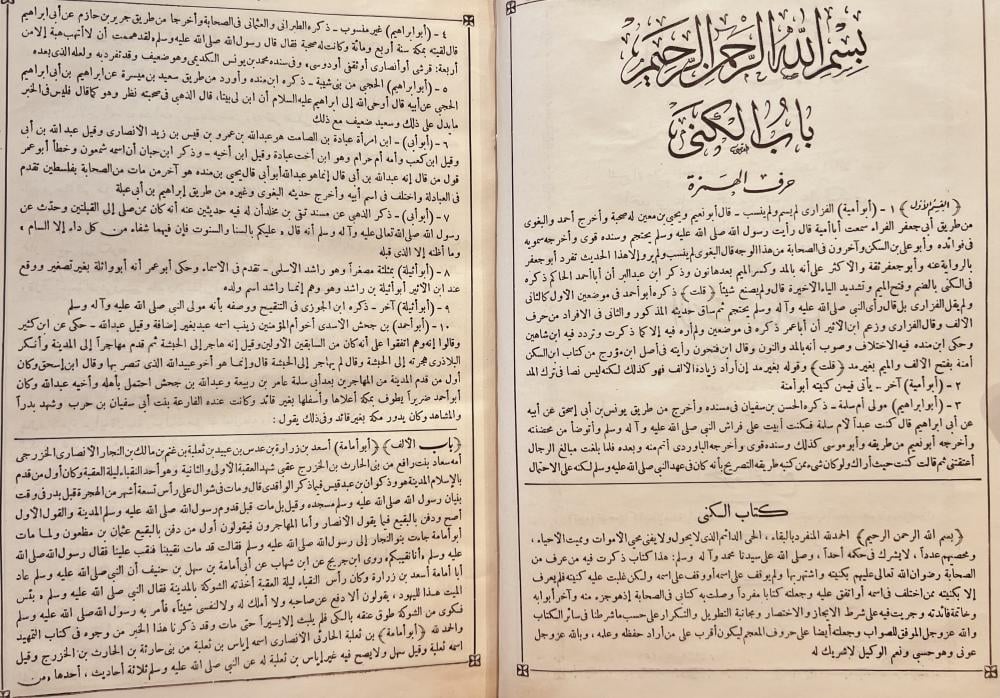 بسم الله الرحمن الرحيم
باب الكنى
حرف الهمزة
﴿القسم الأول﴾ ١ - (أبو أمية) الفزارى لم يسم ولم ينسب - قال أبو نعيم ويحيى بن معين له صحبة وأخرج أحمد والبغوى
من طريق أبى جعفر الفراء سمعت أبا أمية قال رأيت رسول الله صلى الله عليه وسلم يحتجم وسنده قوى وأخرجه سمويه
فى فوائده وأبو على بن السكن وآخرون فى الصحابة من هذا الوجه قال البغوى لم ينسب ولم يرو إلا هذا الحديث تفرد أبو جعفر
بالرواية عنه وأبو جعفر ثقة والأكثر على أنه بالمد وكسر الميم بعدها نون وذكر ابن عبد البر أن أبا أحمد الحاكم ذكره
فى الكنى بالضم وفتح الميم وتشديد الياء الأخيرة قال ولم يصنع شيئا ﴿قلت﴾ ذكره أبو أحمد فى موضعين الأول كالثانى
ولم يقل الفزارى بل قال رأى النبى صلى الله عليه وآله وسلم يحتجم ثم ساق حديثه المذكور والثانى فى الافراد من حرف
الالف وقال الفزارى وزعم ابن الاثير أن أبا عمر ذكره فى موضعين ولم أره فيه إلا كما ذكرت وتردد فيه ابن شاهين
وحكى ابن منده فيه الاختلاف وصوب أنه بالمد والنون وقال ابن فتحون رأيته فى أصل ابن مفرج من كتاب ابن السكن
أمنة بفتح الالف والميم بغير مد ﴿قلت﴾ وقوله بغير مد إن أراد زيادة الالف فهو كذلك لكنه ليس نصا فى ترك المد
٢ - (أبو أمية) آخر - يأتى فيمن كنيته أبو أمنة
٣ - (أبو ابراهيم) مولى أم سلمة - ذكره الحسن بن سفيان فى مسنده وأخرج من طريق يونس بن أبى إسحق عن أبيه
عن أبى ابراهيم قال كنت عبدا لأم سلمة فكنت أبيت على فراش النبى صلى الله عليه وآله وسلم وأتوضأ من مخضنته
وأخرجه أبو نعيم من طريقه وأبو موسى كذلك وسنده قوى وأخرجه الباوردى أتم منه وبعده فلما بلغت مبالغ الرجال
أعتقتنى ثم قالت كنت حيث أراك ولو كان شىء ممن كنيته طريقه التصريح بأنه كان فى عهد النبى صلى الله عليه وسلم لكنه على الاحتمال
كتاب الكنى
﴿بسم الله الرحمن الرحيم﴾ الحمد لله المنفرد بالبقاء، الحى الدائم الذى لا يحول ولا يفنى محيى الأموات ومميت الأحياء،
ومحصيهم عددا، لا يشرك فى حكمه أحدا، وصلى الله على سيدنا محمد وآله وسلم: هذا كتاب ذكرت فيه من عرف من
الصحابة رضوان الله تعالى عليهم بكنيته واشتهر بها ولم يوقف على اسمه أو وقف على اسمه ولكن غلبت عليه كنيته فلم يعرف
إلا بكنيته ممن اختلف فى اسمه أو اتفق عليه وجعلته كتابا مفردا وصلت به كتابى فى الصحابة إذ هو جزء منه وآخر أبوابه
وخاتمة فائدته وجريت فيه على شرط الايجاز والاختصار ومجانبة التطويل والتكرار على حسب ما شرطنا فى سائر الكتاب
والله عز وجل الموفق للصواب وجعلته أيضا على حروف المعجم ليكون أقرب على من أراد حفظه وعله، وبالله عز وجل
عونى وهو حسبى ونعم الوكيل لا شريك له
٤ - (أبو ابراهيم) غير منسوب - ذكره الطبرانى والعثمانى فى الصحابة وأخرجا من طريق جرير بن حازم عن أبى ابراهيم
قال لقيته بمكة سنة أربع ومائة وكانت له صحبة فقال قال رسول الله صلى الله عليه وسلم لقد هممت أن لا أتهب هبة إلا من
أربعة: قرشى أو أنصارى أو ثقفى أو دوسى، وفى سنده محمد بن يونس الكديمى وهو ضعيف وقد تفرد به ولعله الذى بعده
٥ - (أبو ابراهيم) الحجبى من بنى شيبة - ذكره ابن منده وأورد من طريق سعيد بن ميسرة عن ابراهيم بن أبى ابراهيم
الحجبى عن أبيه قال أوحى الله إلى ابراهيم عليه السلام أن ابن لى بيتا، قال الذهبى فى صحبته نظر وهو كما قال فليس فى الخبر
ما يدل على ذلك وسعيد ضعيف مع ذلك
٦ - (أبو أبى) - ابن امرأة عبادة بن الصامت هو عبد الله بن عمرو بن قيس بن زيد الانصارى وقيل عبد الله بن أبى
وقيل ابن كعب وأمه أم حرام وهو ابن أخت عبادة وقيل ابن أخيه - وذكر ابن حبان أن اسمه شمعون وخطأ أبو عمر
قول من قال إنه عبد الله بن أبى قال إنما هو عبد الله أبو أبى قال يحيى بن منده هو آخر من مات من الصحابة بفلسطين تقدم
فى العبادلة واختلف فى اسم أبيه وأخرج حديثه البغوى وغيره من طريق إبراهيم بن أبى عبلة
٧ - (أبو أبى) - ذكر الذهبى عن مسند تقى بن مخلد أن له فيه حديثين عنه أنه كان ممن صلى إلى القبلتين وحدث عن
رسول الله صلى الله تعالى عليه وآله وسلم أنه قال، عليكم بالسنا والسنوت فإن فيهما شفاء من كل داء إلا السام،
وما أظنه إلا الذى قبله
٨ - (أبو أثيلة) بمثلثة مصغرا وهو راشد الاسلمى - تقدم فى الاسماء وحكى أبو عمر أنه أبو واثلة بغير تصغير ووقع
عند ابن الاثير أبو أثيلة بن راشد وهو وهم إنما راشد اسم ولده
٩ - (أبو أثيلة) آخر - ذكره ابن الجوزى فى التنقيح ووصفه بأنه مولى النبى صلى الله عليه وآله وسلم
١٠ - (أبو أحمد) بن جحش الاسدى أخو أم المؤمنين زينب اسمه عبد بغير إضافة وقيل عبد الله - حكى عن ابن كثير
وقالوا إنه وهم اتفقوا على أنه كان من السابقين الأولين وقيل إنه هاجر إلى الحبشة ثم قدم مهاجرا إلى المدينة وأنكر
البلاذرى هجرته إلى الحبشة وقال لم يهاجر إلى الحبشة قال وإنما هو أخو عبيد الله الذى تنصر بها وقال ابن إسحق وكان
أول من قدم المدينة من المهاجرين بعد أبى سلمة عامر بن ربيعة وعبد الله بن جحش احتمل بأهله وأخيه عبد الله وكان
أبو أحمد ضريرا يطوف بمكة أعلاها وأسفلها بغير قائد وكانت عنده الفارعة بنت أبى سفيان بن حرب وشهد بدرا
والمشاهد وكان يدور مكة بغير قائد وفى ذلك يقول:
﴿باب الالف﴾ (أبو أمامة) أسعد بن زرارة بن عدس بن عبيد بن ثعلبة بن غنم بن مالك بن النجار الانصارى الخزرجى
أمه سعاد بنت رافع من بنى الحارث بن الخزرج عقبى شهد العقبة الأولى والثانية وهو أحد النقباء ليلة العقبة وكان أول من قدم
بالإسلام المدينة هو وذكوان بن عبد قيس فيما ذكر الواقدى قال ومات فى شوال على رأس تسعة أشهر من الهجرة قبل بدر فى وقت
بنيان رسول الله صلى الله عليه وسلم مسجده وقيل بل مات قبل قدوم رسول الله صلى الله عليه وسلم المدينة والقول الأول
أصح ودفن بالبقيع فيما يقول الأنصار وأما المهاجرون فيقولون أول من دفن بالبقيع عثمان بن مظعون ولما مات
أبو أمامة جاءت بنو النجار إلى رسول الله صلى الله عليه وسلم فقالت قد مات نقيبنا فنقب علينا فقال رسول الله صلى الله
عليه وسلم أنا نقيبكم، وروى ابن جريج عن ابن شهاب عن أبى أمامة بن سهل بن حنيف أن النبى صلى الله عليه وسلم عاد
أبا أمامة أسعد بن زرارة وكان رأس النقباء ليلة العقبة أخذته الشوكة بالمدينة فقال النبى صلى الله عليه وسلم، بئس
الميت هذا لليهود، يقولون ألا دفع عن صاحبه ولا أملك له ولا لنفسى شيئا، فأمر به رسول الله صلى الله عليه وسلم
فكوى من الشوكة طوق عنقه بالكى فلم يلبث إلا يسيرا حتى مات وقد ذكرنا هذا الخبر من وجوه فى كتاب التمهيد
والحمد لله ﴿أبو أمامة﴾ بن ثعلبة الحارثى الانصارى اسمه إياس بن ثعلبة من بنى حارثة بن الحارث بن الخزرج وقيل
اسمه ثعلبة وقيل سهل ولا يصح فيه غير إياس بن ثعلبة له عن النبى صلى الله عليه وسلم ثلاثة أحاديث، أحدها، من